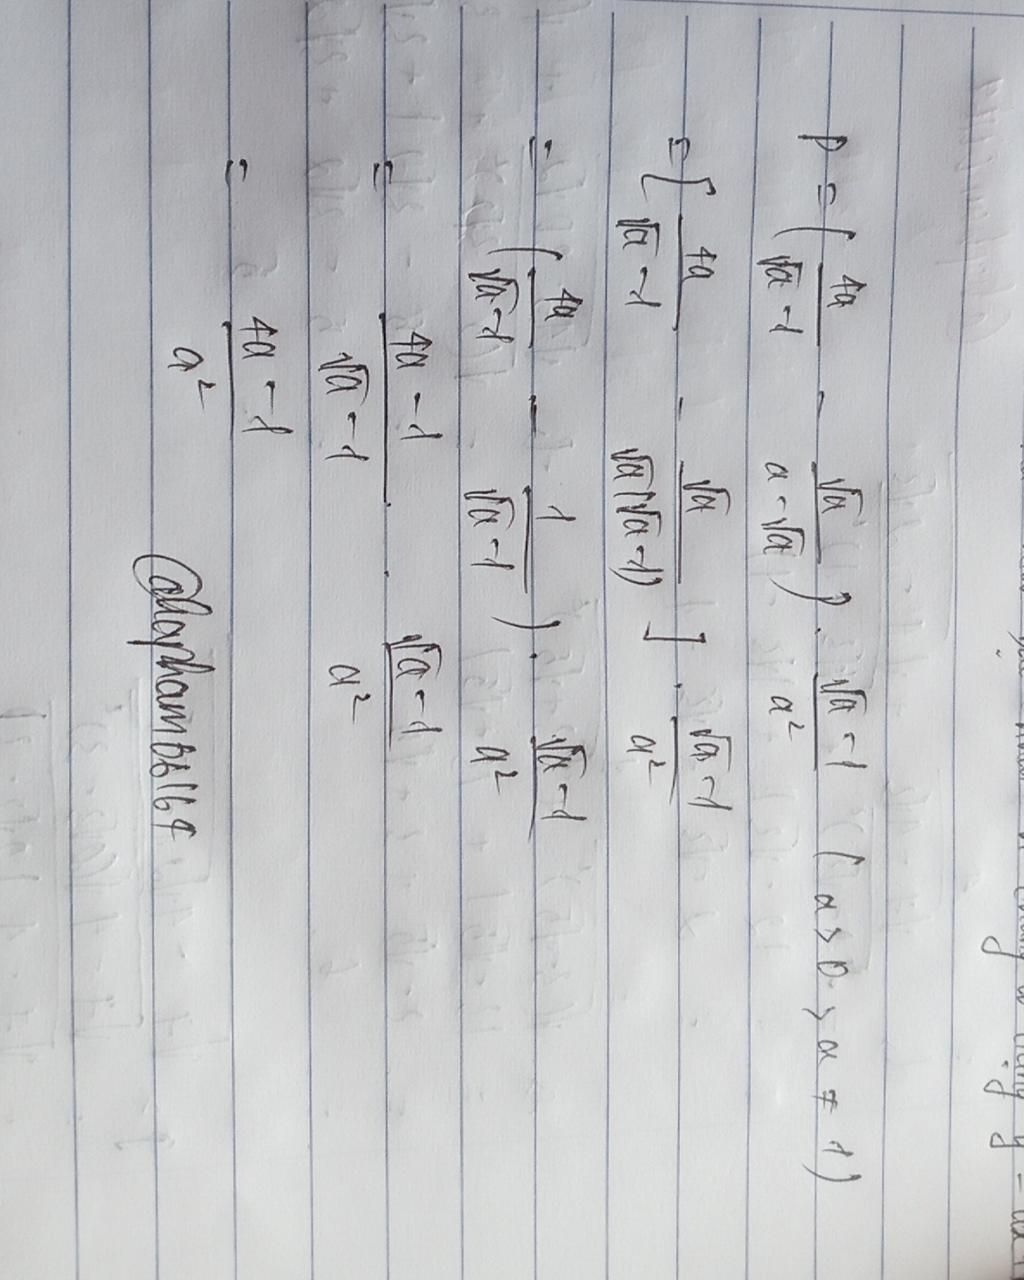 P = ( 4a/(√a - 1) - √a/(a - √a) ) . (√a - 1)/a² ( a > 0 , a ≠ 1 )
= [ 4a/(√a - 1) - √a/(√a(√a - 1)) ] . (√a - 1)/a²
= ( 4a/(√a - 1) - 1/(√a - 1) ) . (√a - 1)/a²
= (4a - 1)/(√a - 1) . (√a - 1)/a²
= (4a - 1)/a²
y = ax